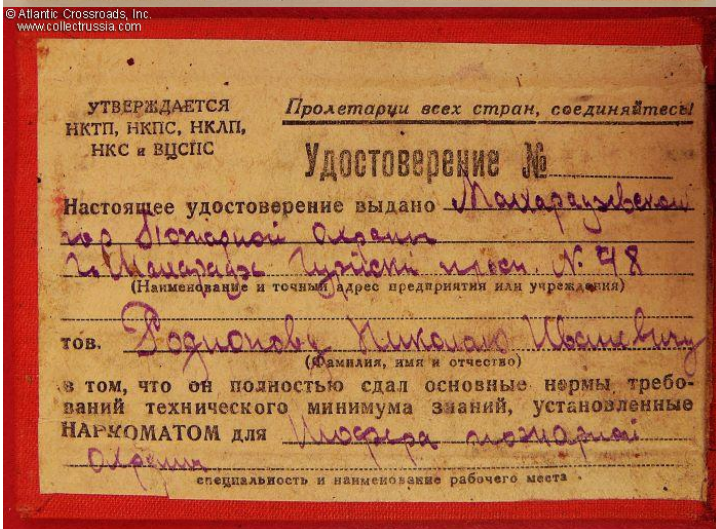 © Atlantic Crossroads, Inc.
www.collectrussia.com
УТВЕРЖДАЕТСЯ
НКТП, НКПС, НКЛП,
НКС и ВЦСПС
Пролетарии всех стран, соединяйтесь!
Удостоверение №
Настоящее удостоверение выдано Махарадзевской
гор Пожарной Охраны
г. Махарадзе Гурийский просп. № 48
(Наименование и точный адрес предприятия или учреждения)
тов. Родионову Николаю Ивановичу
(Фамилия, имя и отчество)
в том, что он полностью сдал основные нормы требо-
ваний технического минимума знаний, установленные
НАРКОМАТОМ для Шофера пожарной
Охраны
специальность и наименование рабочего места